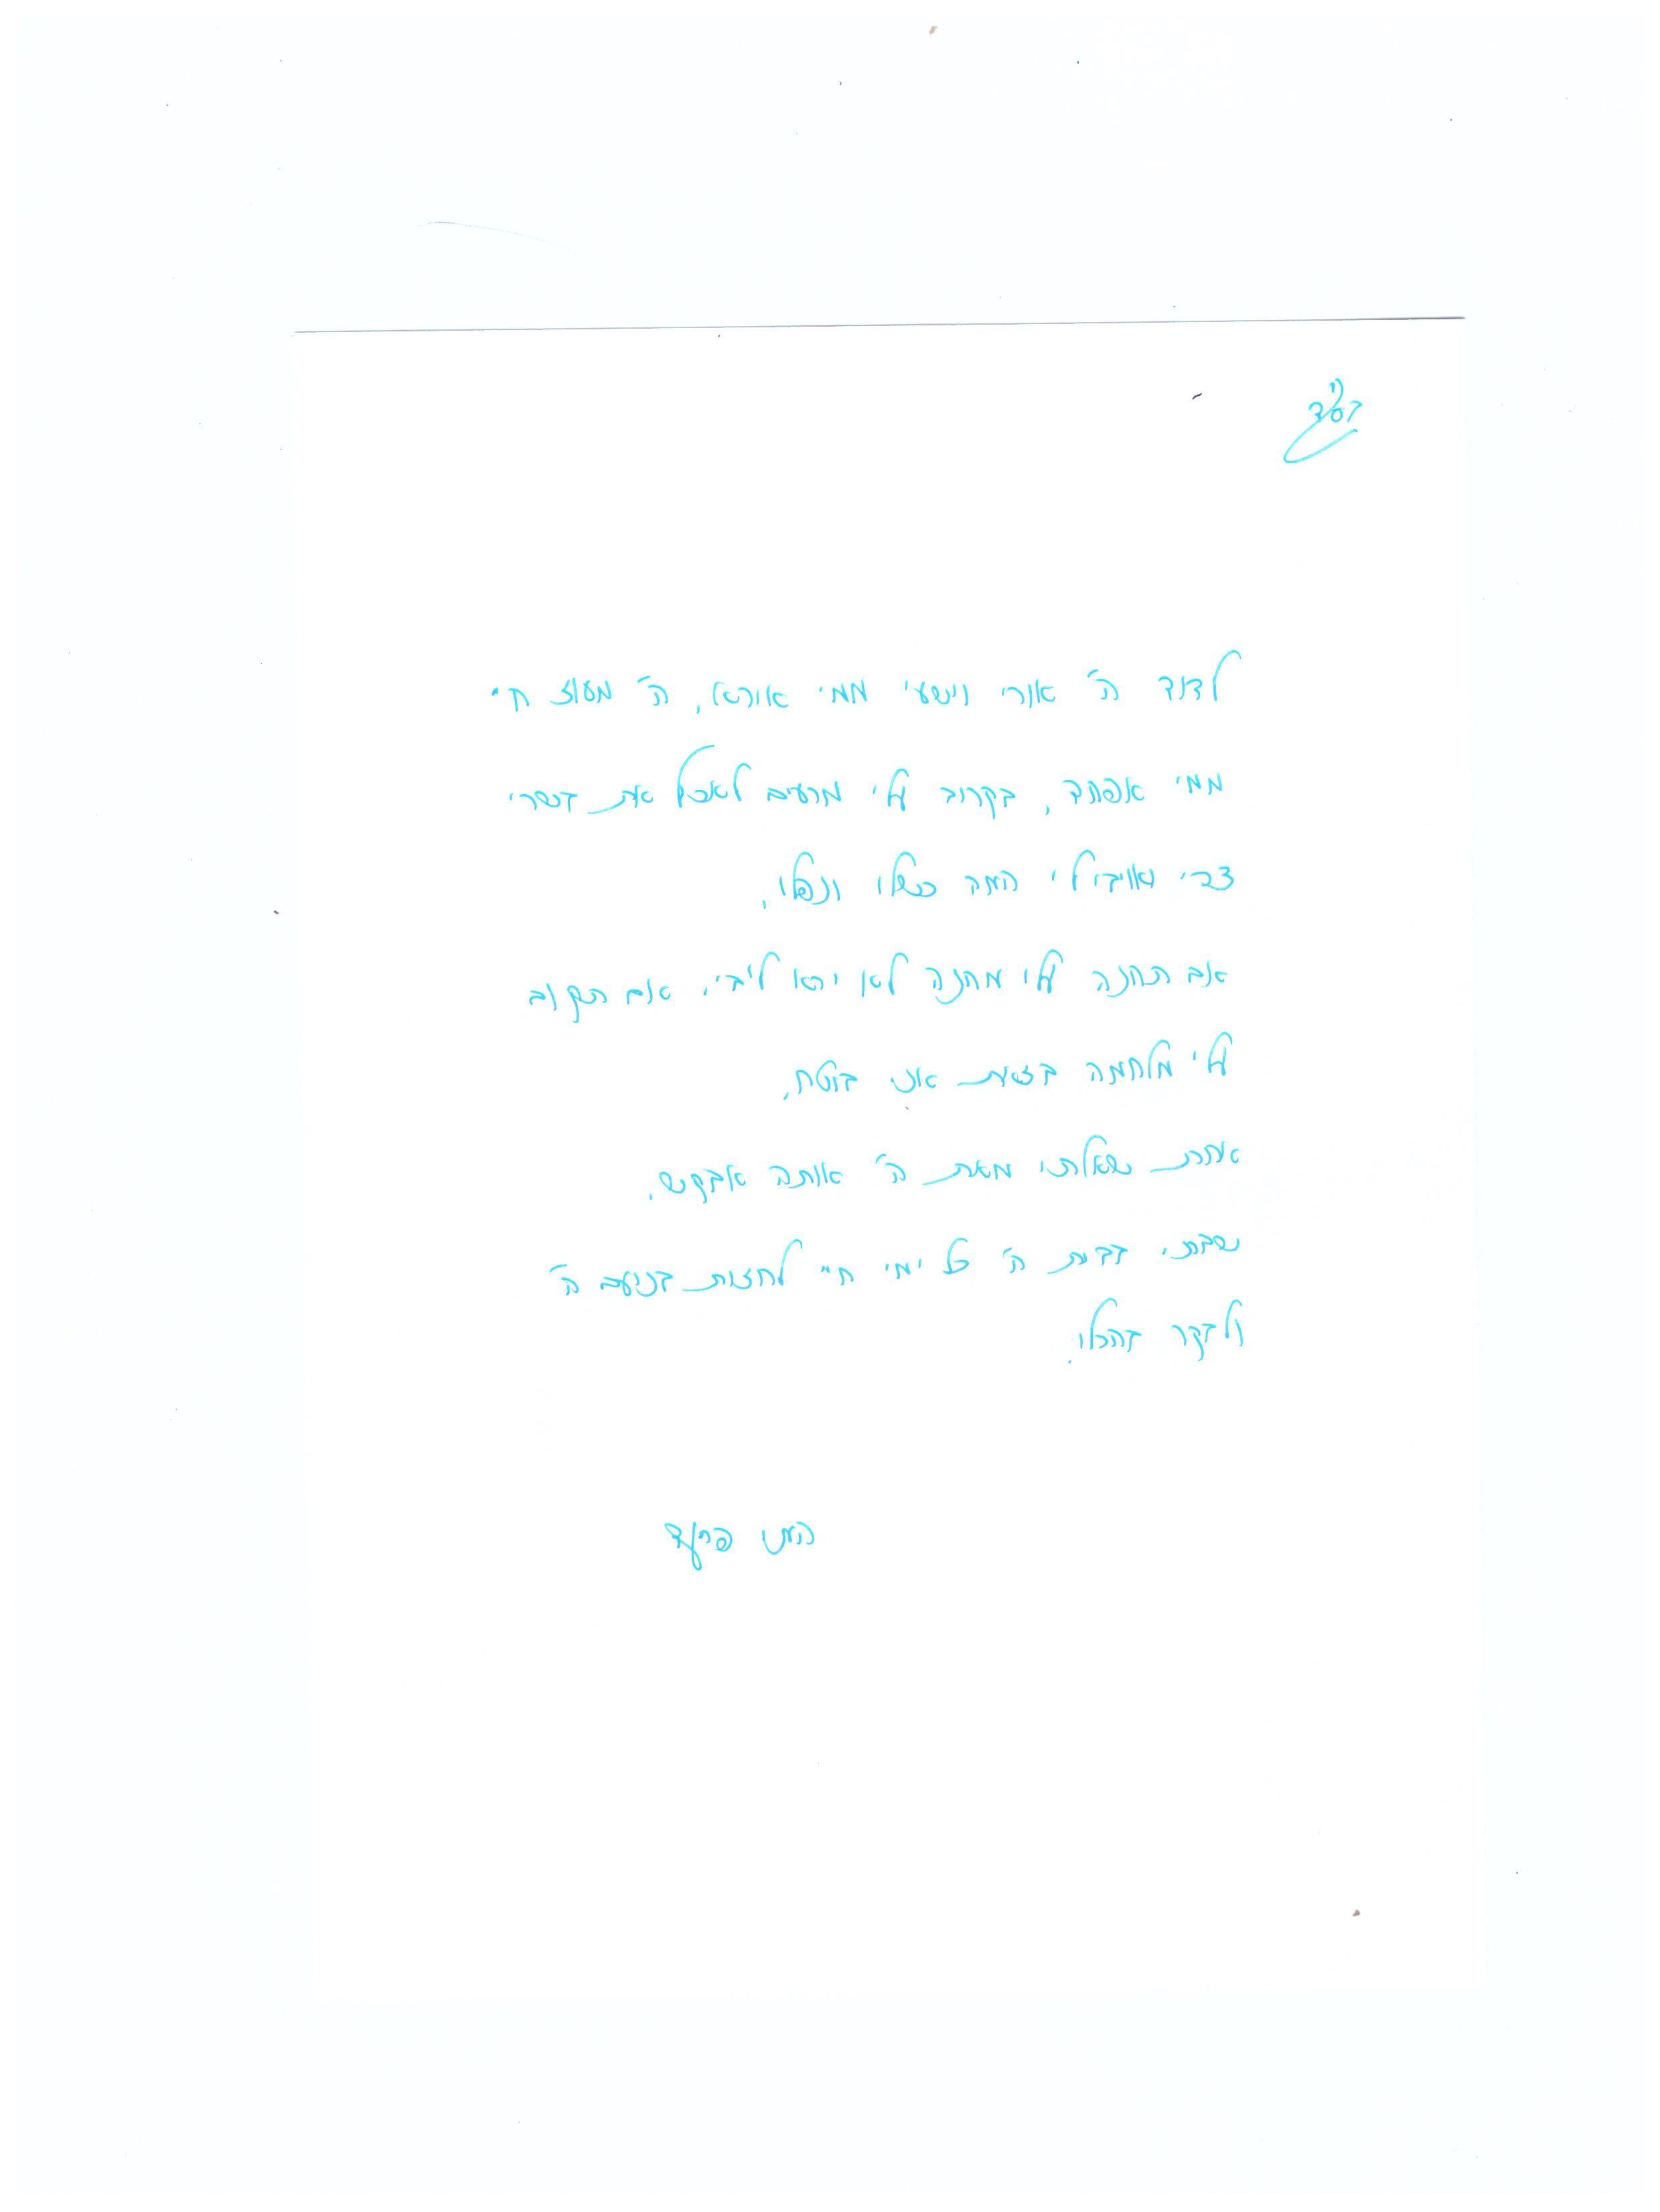 בס"ד
לדוד ה' אורי וישעי ממי אירא, ה' מעוז חיי
ממי אפחד, בקרוב עלי מרעים לאכול את בשרי
צרי ואויבי לי המה כשלו ונפלו,
אם תחנה עלי מחנה לא יירא ליבי, אם תקום
עלי מלחמה בזאת אני בוטח,
אחת שאלתי מאת ה' אותה אבקש.
שבתי בבית ה' כל ימי חיי לחזות בנועם ה'
ולבקר בהכלו.